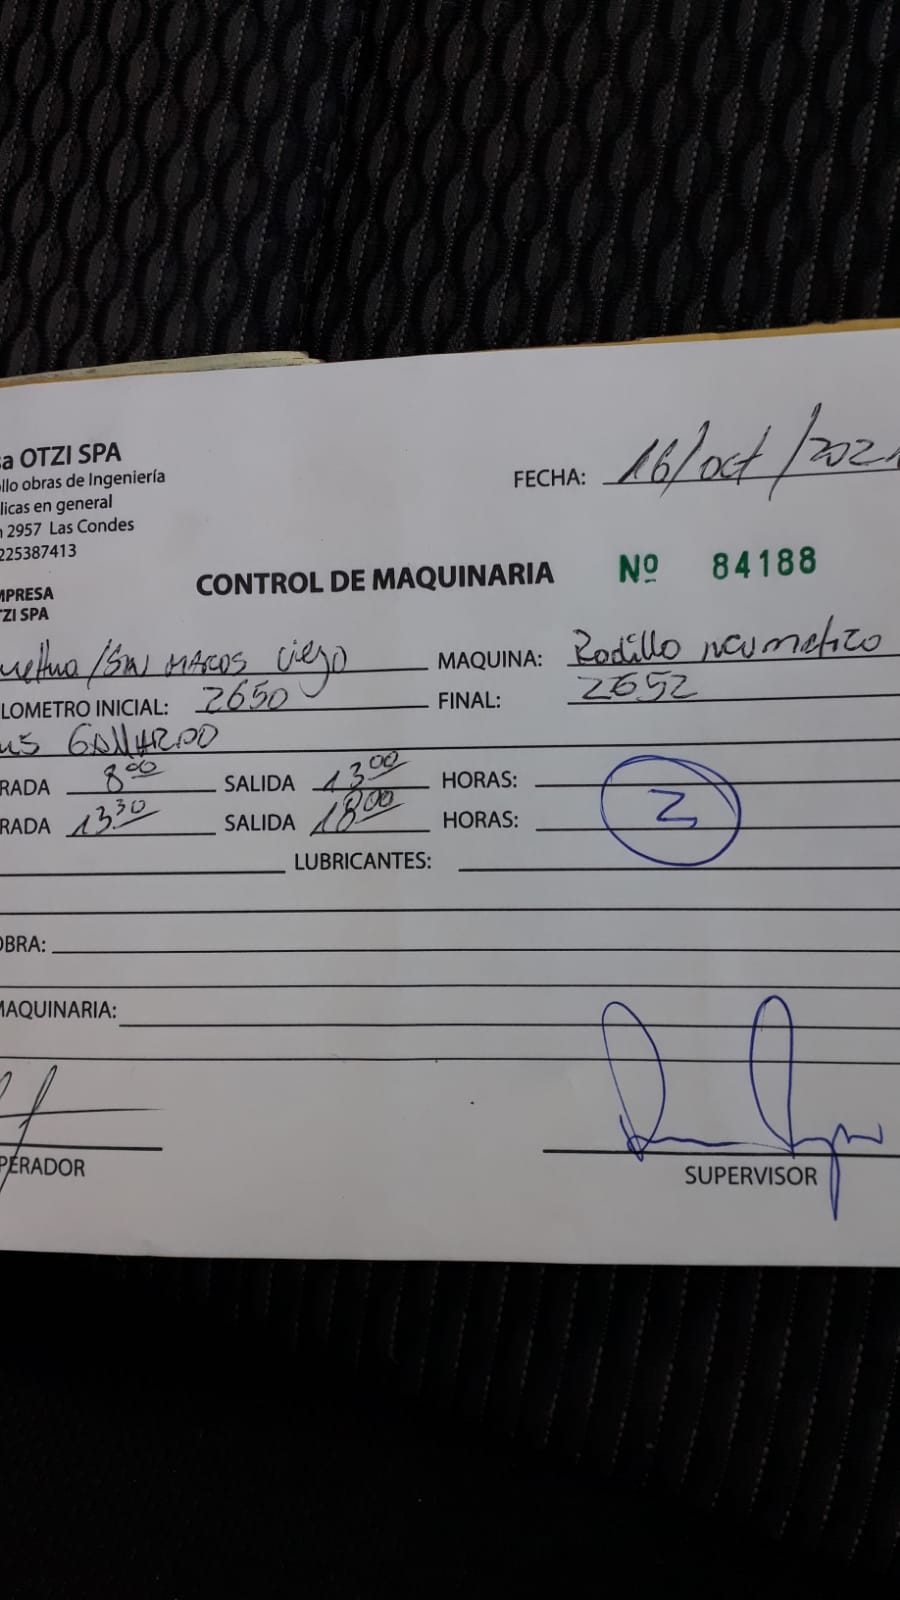 a OTZI SPA
llo obras de Ingeniería
licas en general
2957 Las Condes
225387413
FECHA: 16/oct/202
MPRESA
TZI SPA
CONTROL DE MAQUINARIA Nº 84188
/SAN MARCOS viejo MAQUINA: Rodillo neumatico
LOMETRO INICIAL: 2650 FINAL: 2652
GALLARDO
RADA 8:00 SALIDA 13:00 HORAS:
2
RADA 13:30 SALIDA 18:00 HORAS:
LUBRICANTES:
OBRA:
MAQUINARIA:
PERADOR
SUPERVISOR